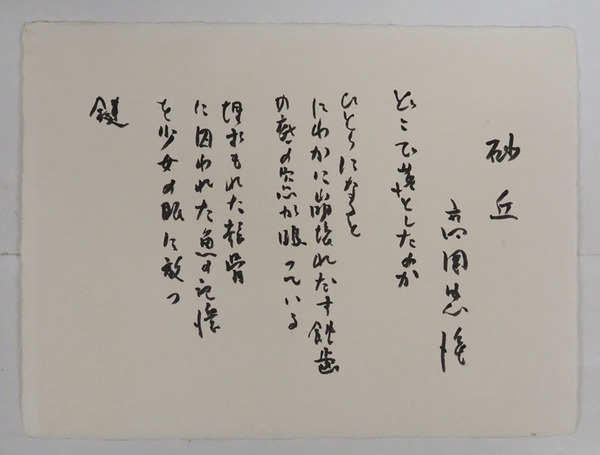 砂丘
どこで落としたのか
ひとりになると
にわかに崩壊れだす鋸歯
の底の窓が眠っている
埋もれた骨
に囚われた魚の記憶
を少女の眼に放つ
鍵